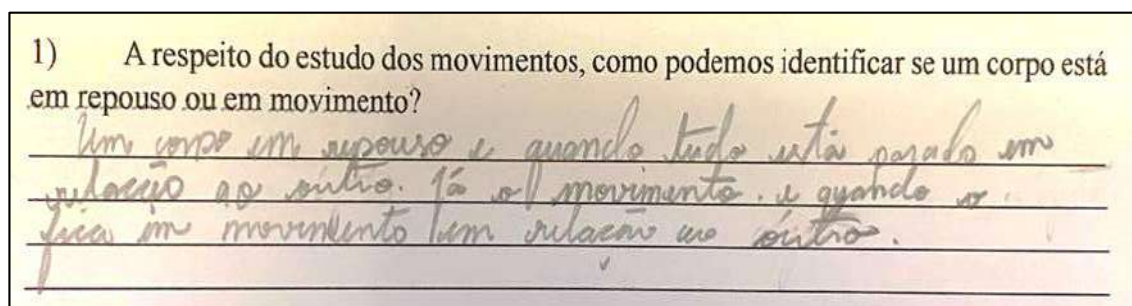 1) A respeito do estudo dos movimentos, como podemos identificar se um corpo está
em repouso ou em movimento?
Um corpo em repouso e quando tudo esta parado em
relacção ao outro. Já o movimento. e quando
fica im movimento em relação ao outro.